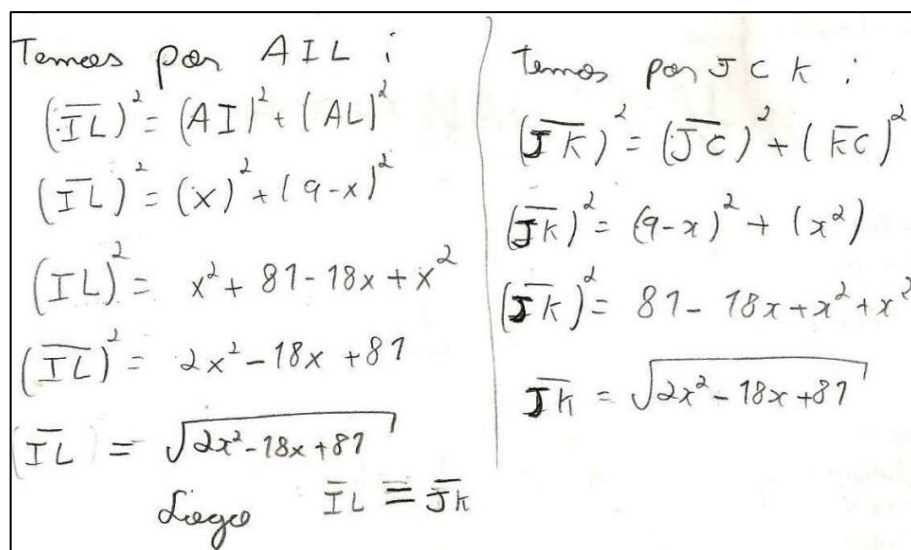 Temos por AIL :
(I̅L̅)² = (AI)² + (AL)²
(I̅L̅)² = (x)² + (9-x)²
(IL)² = x² + 81 - 18x + x²
(I̅L̅)² = 2x² - 18x + 81
I̅L̅ = √(2x² - 18x + 81)
Logo I̅L ≡ J̅K̅
Temos por JCK :
(J̅K̅)² = (J̅C̅)² + (K̅C̅)²
(J̅K̅)² = (9-x)² + (x²)
(J̅K̅)² = 81 - 18x + x² + x²
J̅K̅ = √(2x² - 18x + 81)